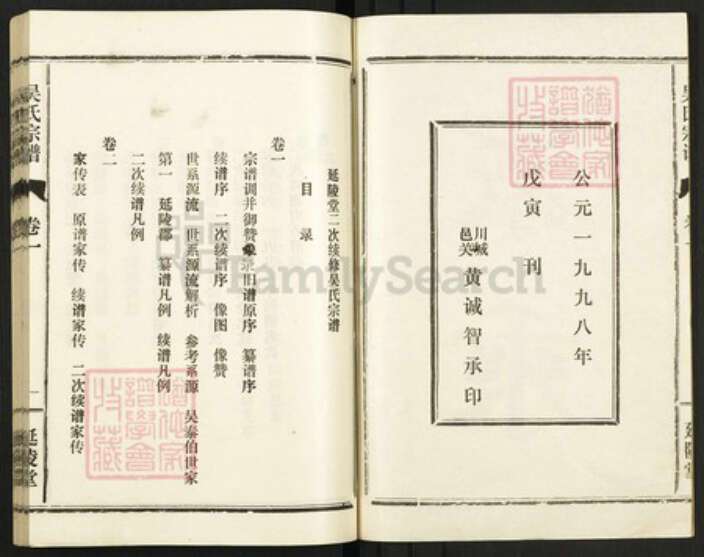 公元一九九八年
戊寅 刊
川城
邑关 黄诚智承印
延陵堂二次续修吴氏宗谱
目录
卷一
宗谱调并御赞 旧谱原序 纂谱序
续谱序 二次续谱序 像图 像赞
世系源流 世系源流解析 参考系源 吴泰伯世家
第一 延陵郡 纂谱凡例 续谱凡例
二次续谱凡例
卷二
家传表 原谱家传 续谱家传 二次续谱家传
吴氏宗谱 卷一 一 延陵堂
FamilySearch